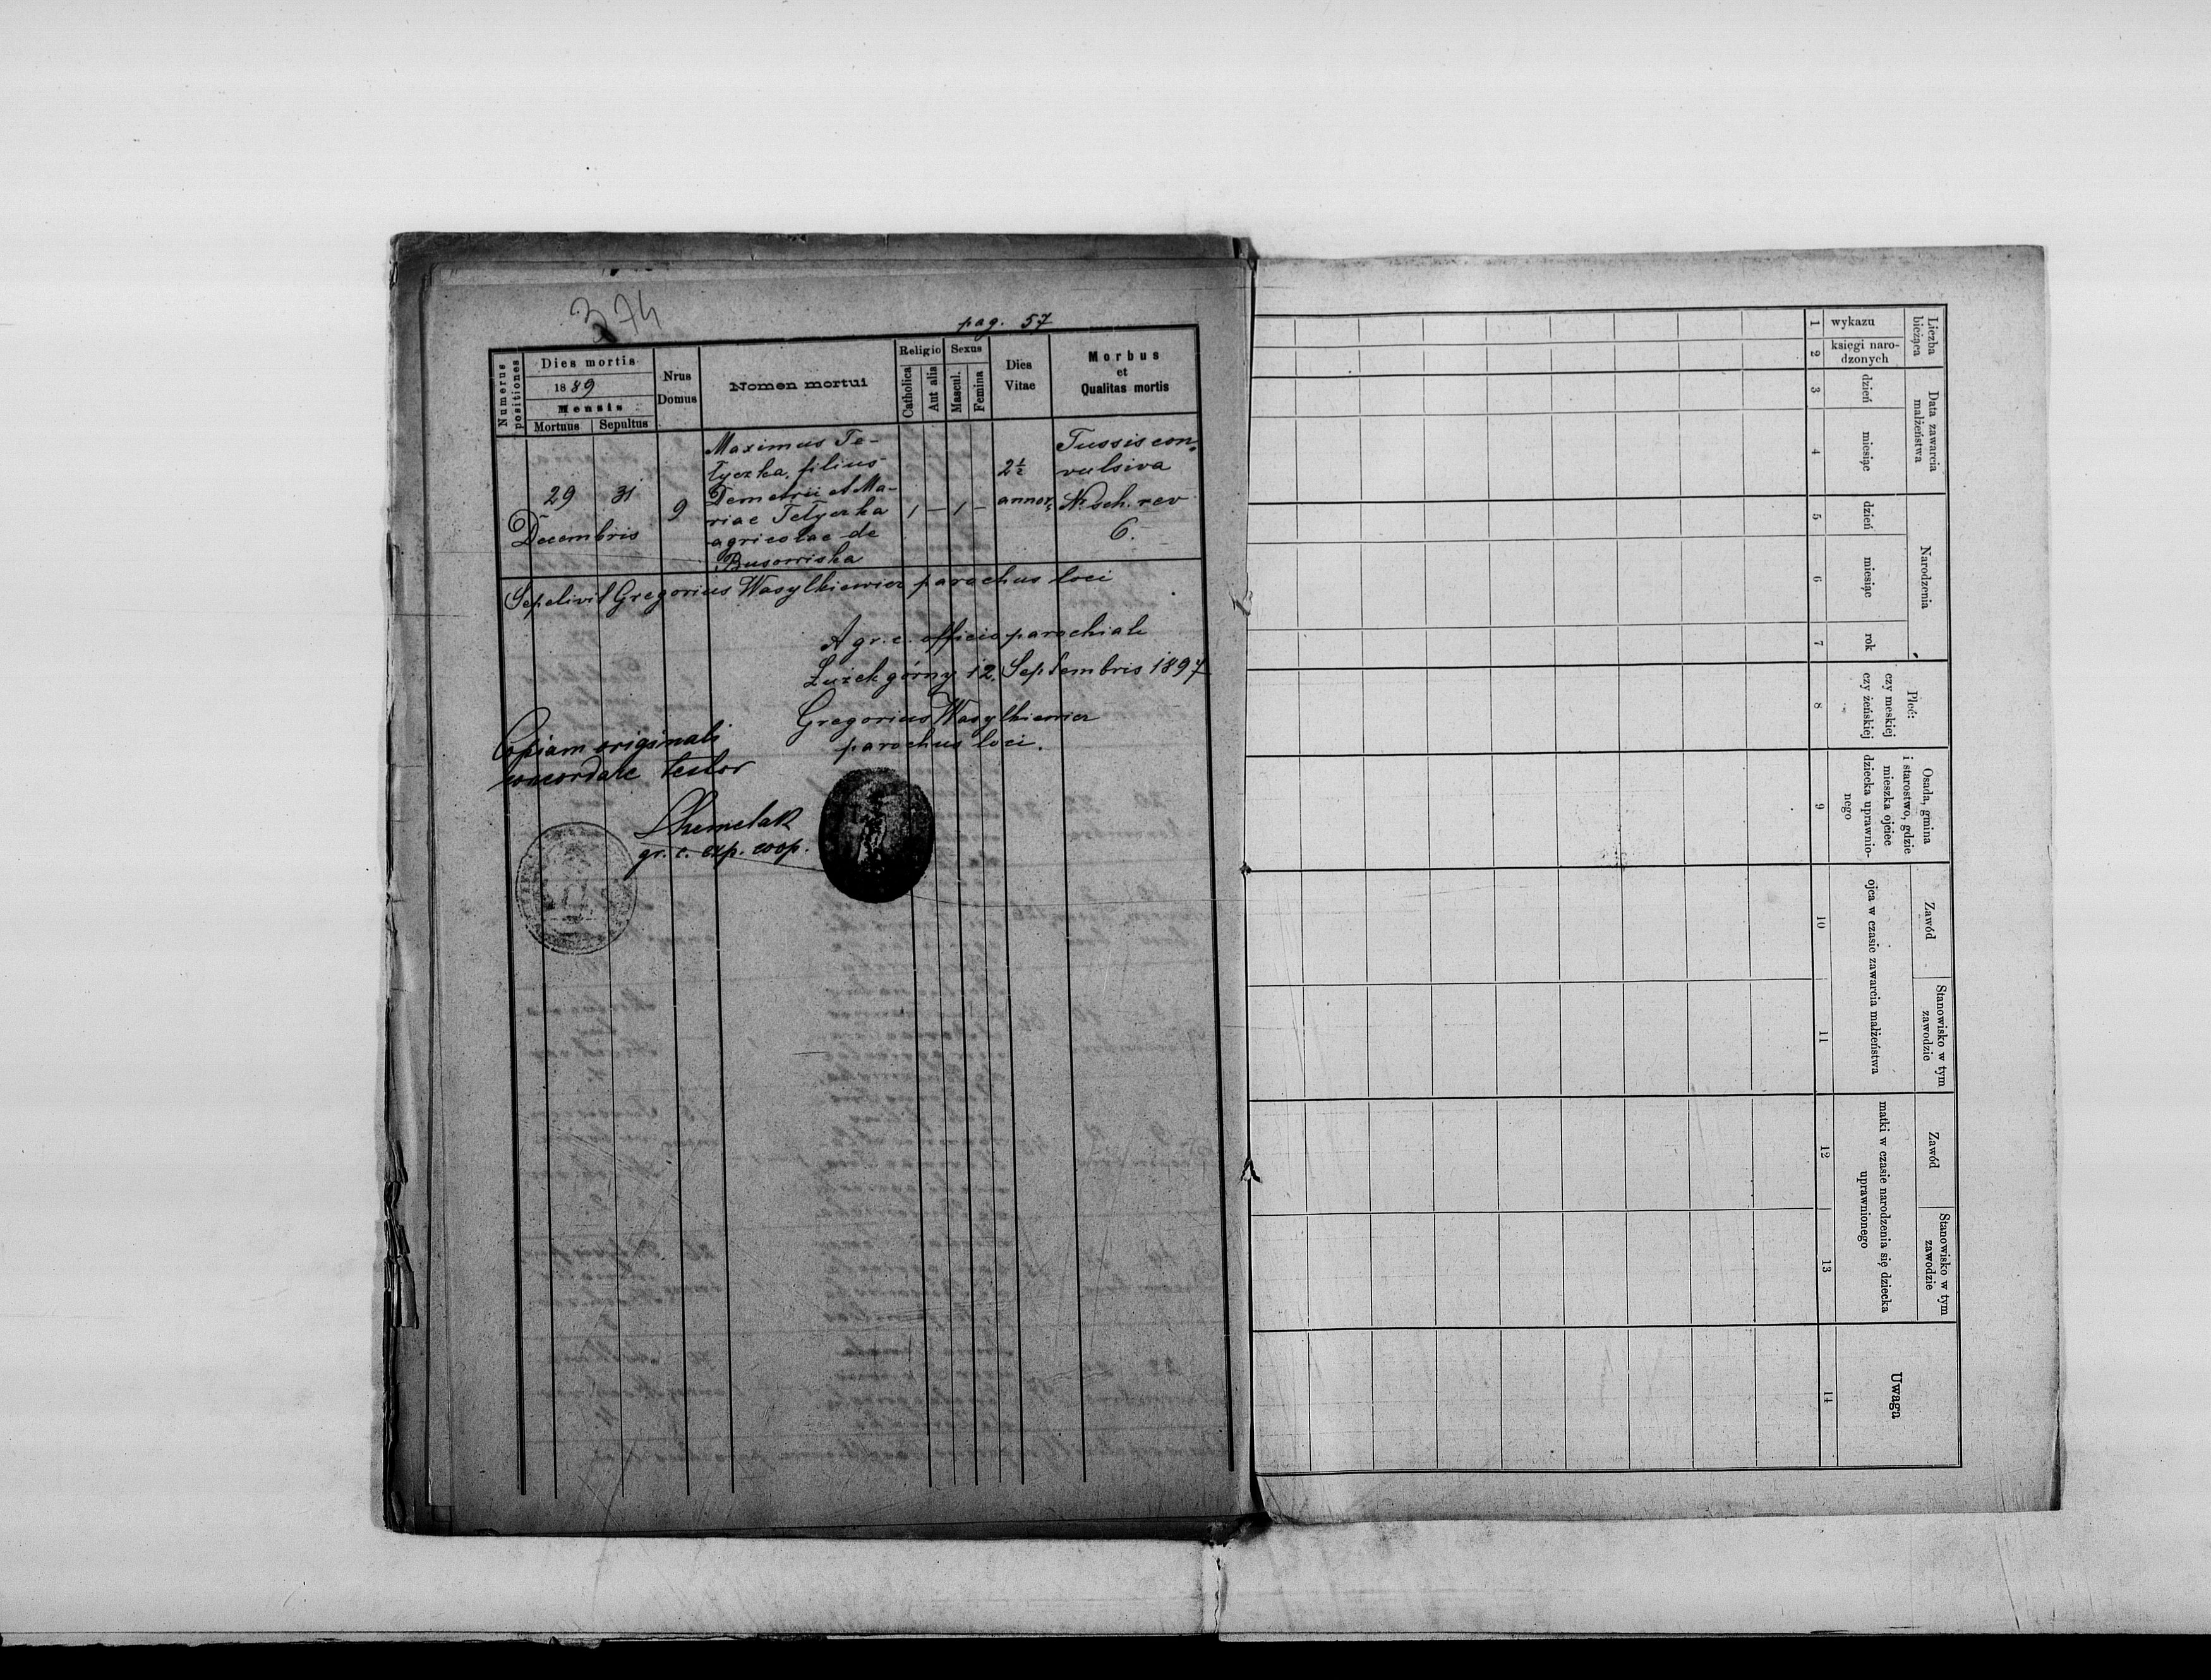 374
pag. 57
Numerus positiones
Dies mortis
1889
Mensis
Mortuus
Sepultus
Nrus Domus
Nomen mortui
Religio
Catholica
Aut alia
Sexus
Mascul.
Femina
Dies Vitae
Morbus
et
Qualitas mortis
29 31
Decembris
9
Maximus Te-
tyczka, filius
Demetrii et Ma-
riae Tetyczka
agricolae de
Busowiska
1 — 1 —
2½
annor.
Tussis con-
vulsiva
Nr. sch. rev
6.
Sepelivit Gregorius Wasylkiewicz parochus loci
A gr. c. officio parochiali
Łużek górny 12. Septembris 1897
Gregorius Wasylkiewicz
parochus loci.
Copiam originali
concordare testor
gr. c. exp. coop.
Liczba bieżąca
wykazu
księgi naro-
dzonych
Data zawarcia
małżeństwa
dzień
miesiąc
Narodzenia
dzień
miesiąc
rok
Płeć:
czy męskiej
czy żeńskiej
Osada, gmina
i starostwo, gdzie
mieszka ojciec
dziecka uprawnio-
nego
Zawód
Stanowisko w tym
zawodzie
ojca w czasie zawarcia małżeństwa
Zawód
Stanowisko w tym
zawodzie
matki w czasie narodzenia się dziecka
uprawnionego
Uwaga
1 2 3 4 5 6 7 8 9 10 11 12 13 14